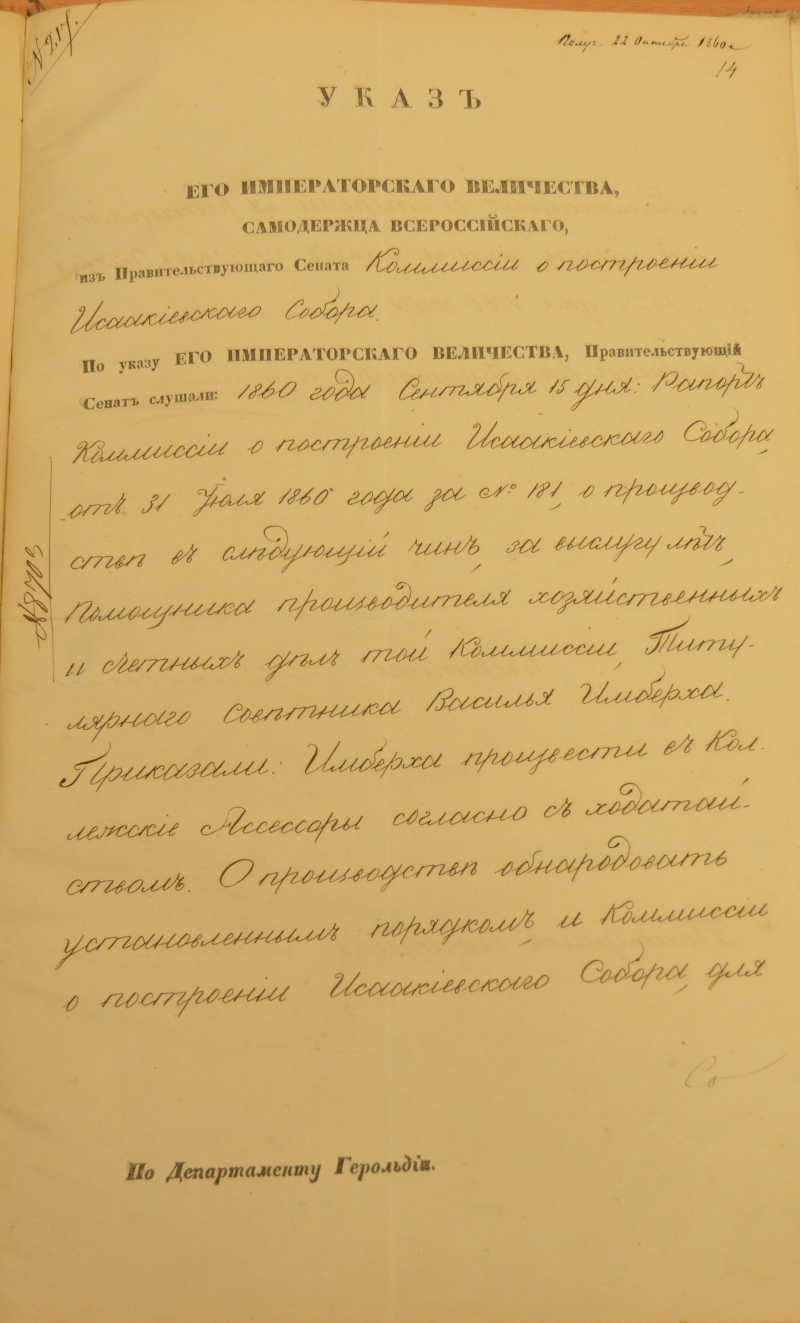 N 217.
Получ. 22 Октября 1860 г.
14
УКАЗЪ
ЕГО ИМПЕРАТОРСКАГО ВЕЛИЧЕСТВА,
САМОДЕРЖЦА ВСЕРОССІЙСКАГО,
изъ Правительствующаго Сената Коммиссіи о построеніи
Исаакіевскаго Собора.
По указу ЕГО ИМПЕРАТОРСКАГО ВЕЛИЧЕСТВА, Правительствующій
Сенатъ слушали: 1860 года Сентября 15 дня: Рапортъ
Коммиссіи о построеніи Исаакіевскаго Собора,
отъ 31 Іюля 1860 года за № 181, о производ-
ствѣ въ слѣдующій чинъ, за выслугу лѣтъ,
Помощника производителя хозяйственныхъ
и счетныхъ дѣлъ той Коммиссіи, Титу-
лярнаго Совѣтника Василья Имберха.
Приказали: Имберха произвести въ Кол-
лежскіе Ассессоры согласно съ ходатай-
ствомъ. О производствѣ обнародовать
установленнымъ порядкомъ, и Коммиссіи
о построеніи Исаакіевскаго Собора, для
Со
По Департаменту Герольдіи.